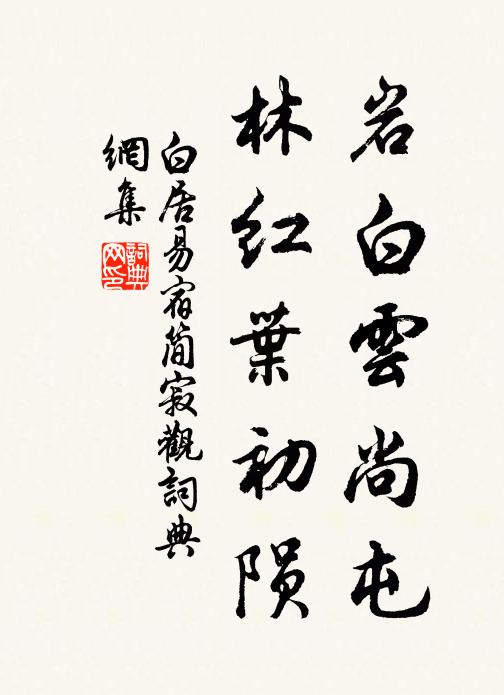 岩白雲尚屯
林红葉初陨
白居易宿简寂觀詞典
網集
詞典
网印